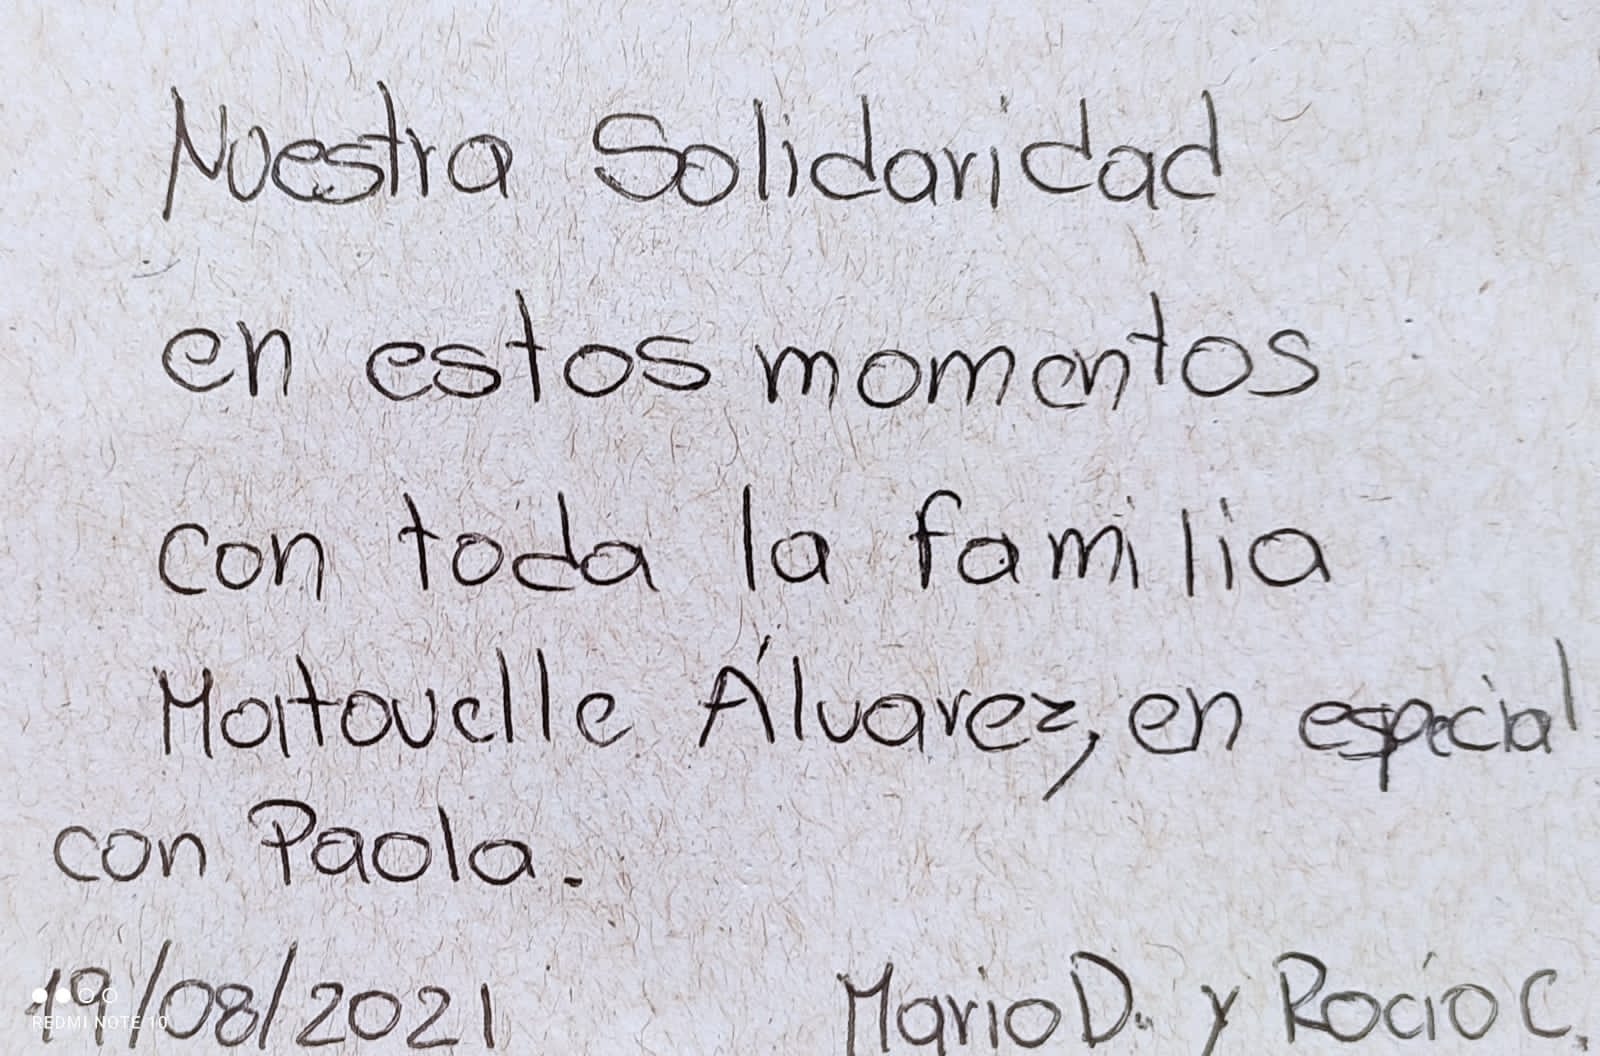 Nuestra Solidaridad
en estos momentos
con toda la familia
Moitouelle Álvarez, en especial
con Paola.
19/08/2021 Mario D. y Rocío C.
REDMI NOTE 10